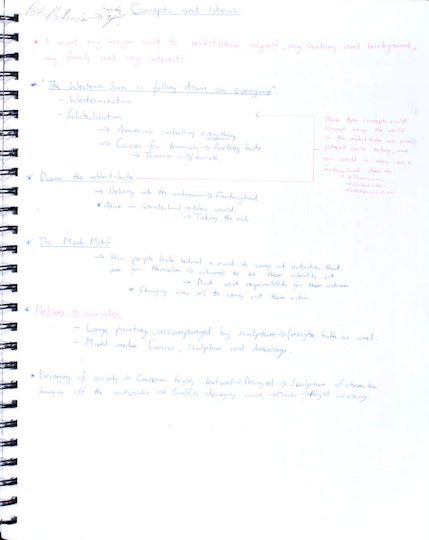 Post Modernism → Concepts and Ideas
* I want my major work to reflect/show myself, my history and background,
my family and my interests.
* "The Western Sun is falling down on everyone".
- Westernisation
- Globalisation
→ America controlling everything
→ Causes for terrorism → Fuelling hate
→ Terrorism → Aftermath
These two concepts could
connect using the world
in the rabbit hole as
present world today, and
our world is seen as a
fantasy land due to
→ Terrorism
* Down the rabbit-hole
→ Delving into the unknown → Fantasy land
* Alice in wonderland → New world
→ Taking the risk.
* The Mask Motif.
→ How people hide behind a mask to carry out activities that
are not themselves → ashamed to let their identity out
→ Dont want responsibility for their actions
* Changing ones self to carry out their action
* Mediums to consider
- Large painting, accompanied by sculpture → (maybe both as one).
- Mixed media Canvas, Sculpture and drawings.
* Decaying of society → Canvas highly textured → Decayed → Sculpture of character
hanging off the → Graffiti decaying society →